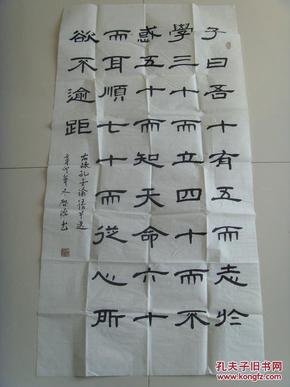 子曰吾十有五而志於
學三十而立四十而不
惑五十而知天命六十
而耳順七十而從心所
欲不逾距
右録孔子論語
孔夫子旧书网